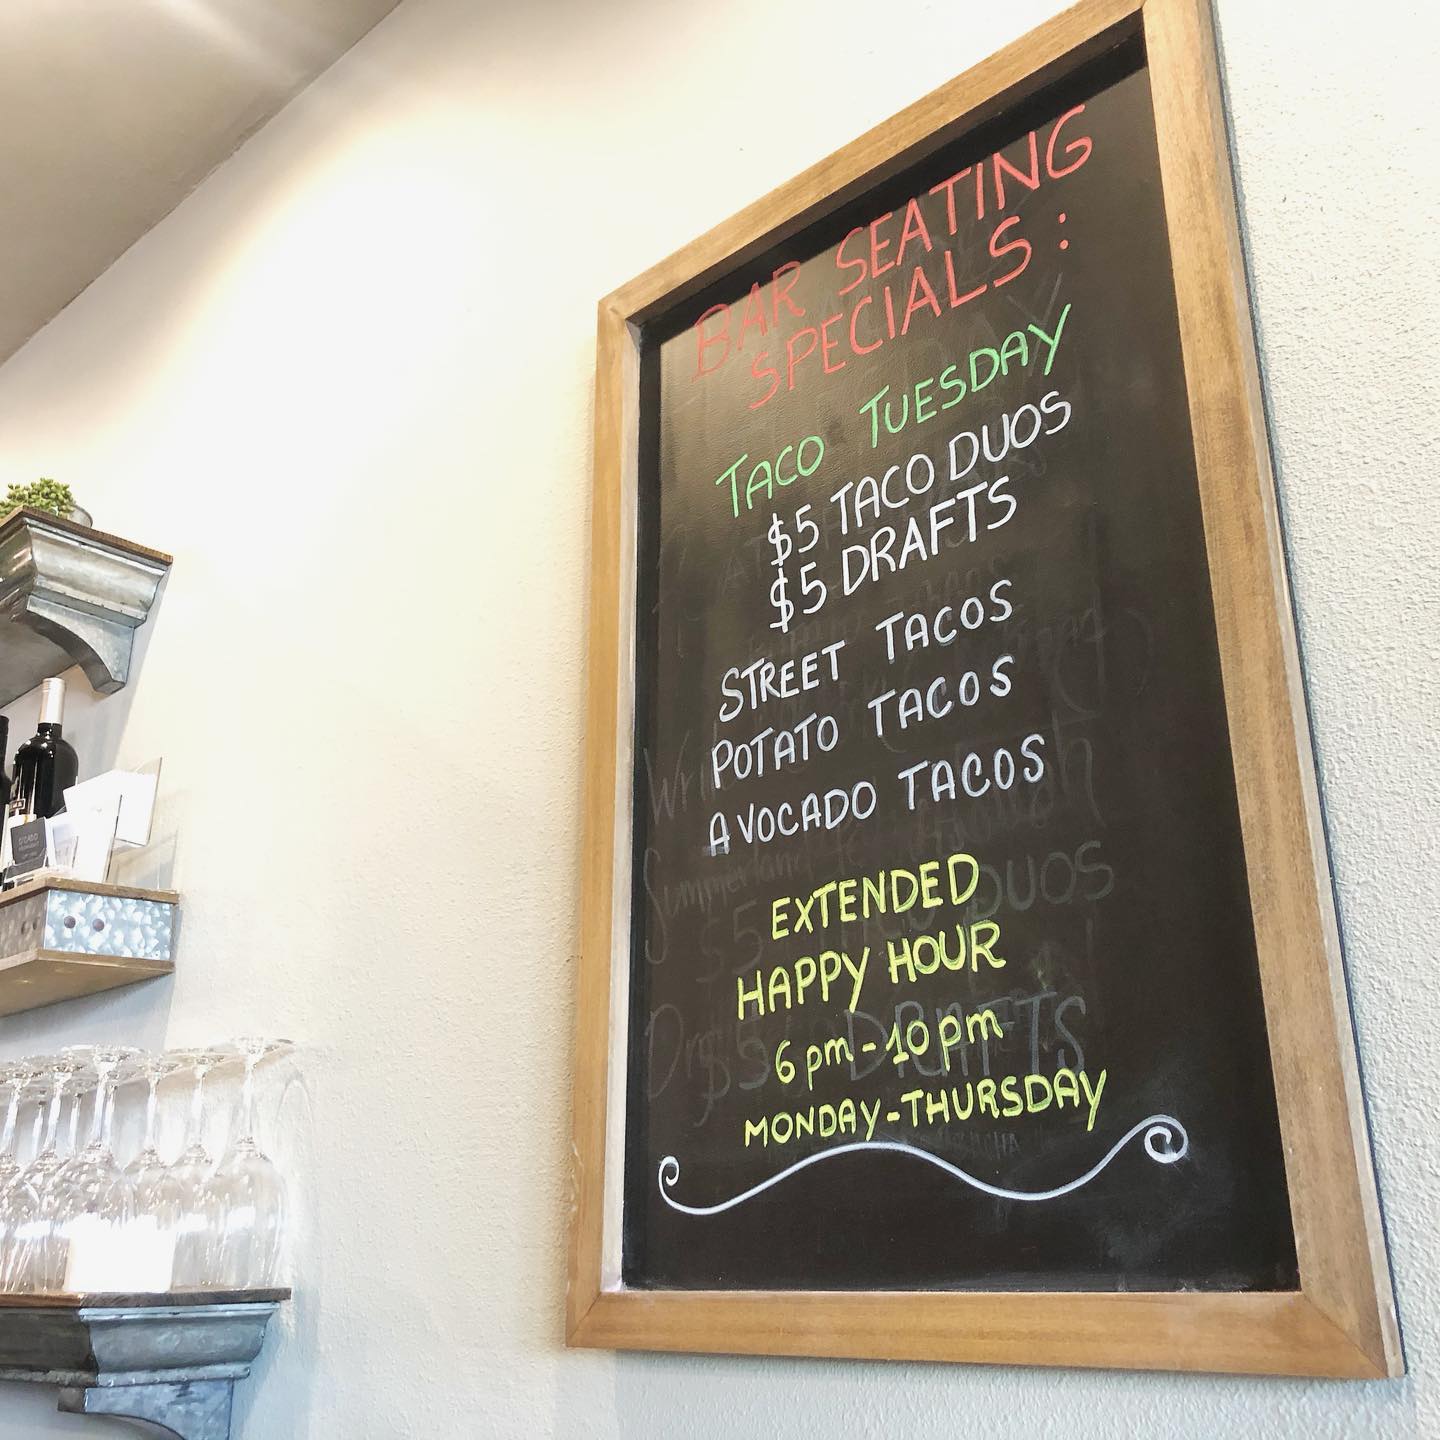 BAR SEATING
SPECIALS:
TACO TUESDAY
$5 TACO DUOS
$5 DRAFTS
STREET TACOS
POTATO TACOS
AVOCADO TACOS
EXTENDED
HAPPY HOUR
6pm-10pm
MONDAY-THURSDAY